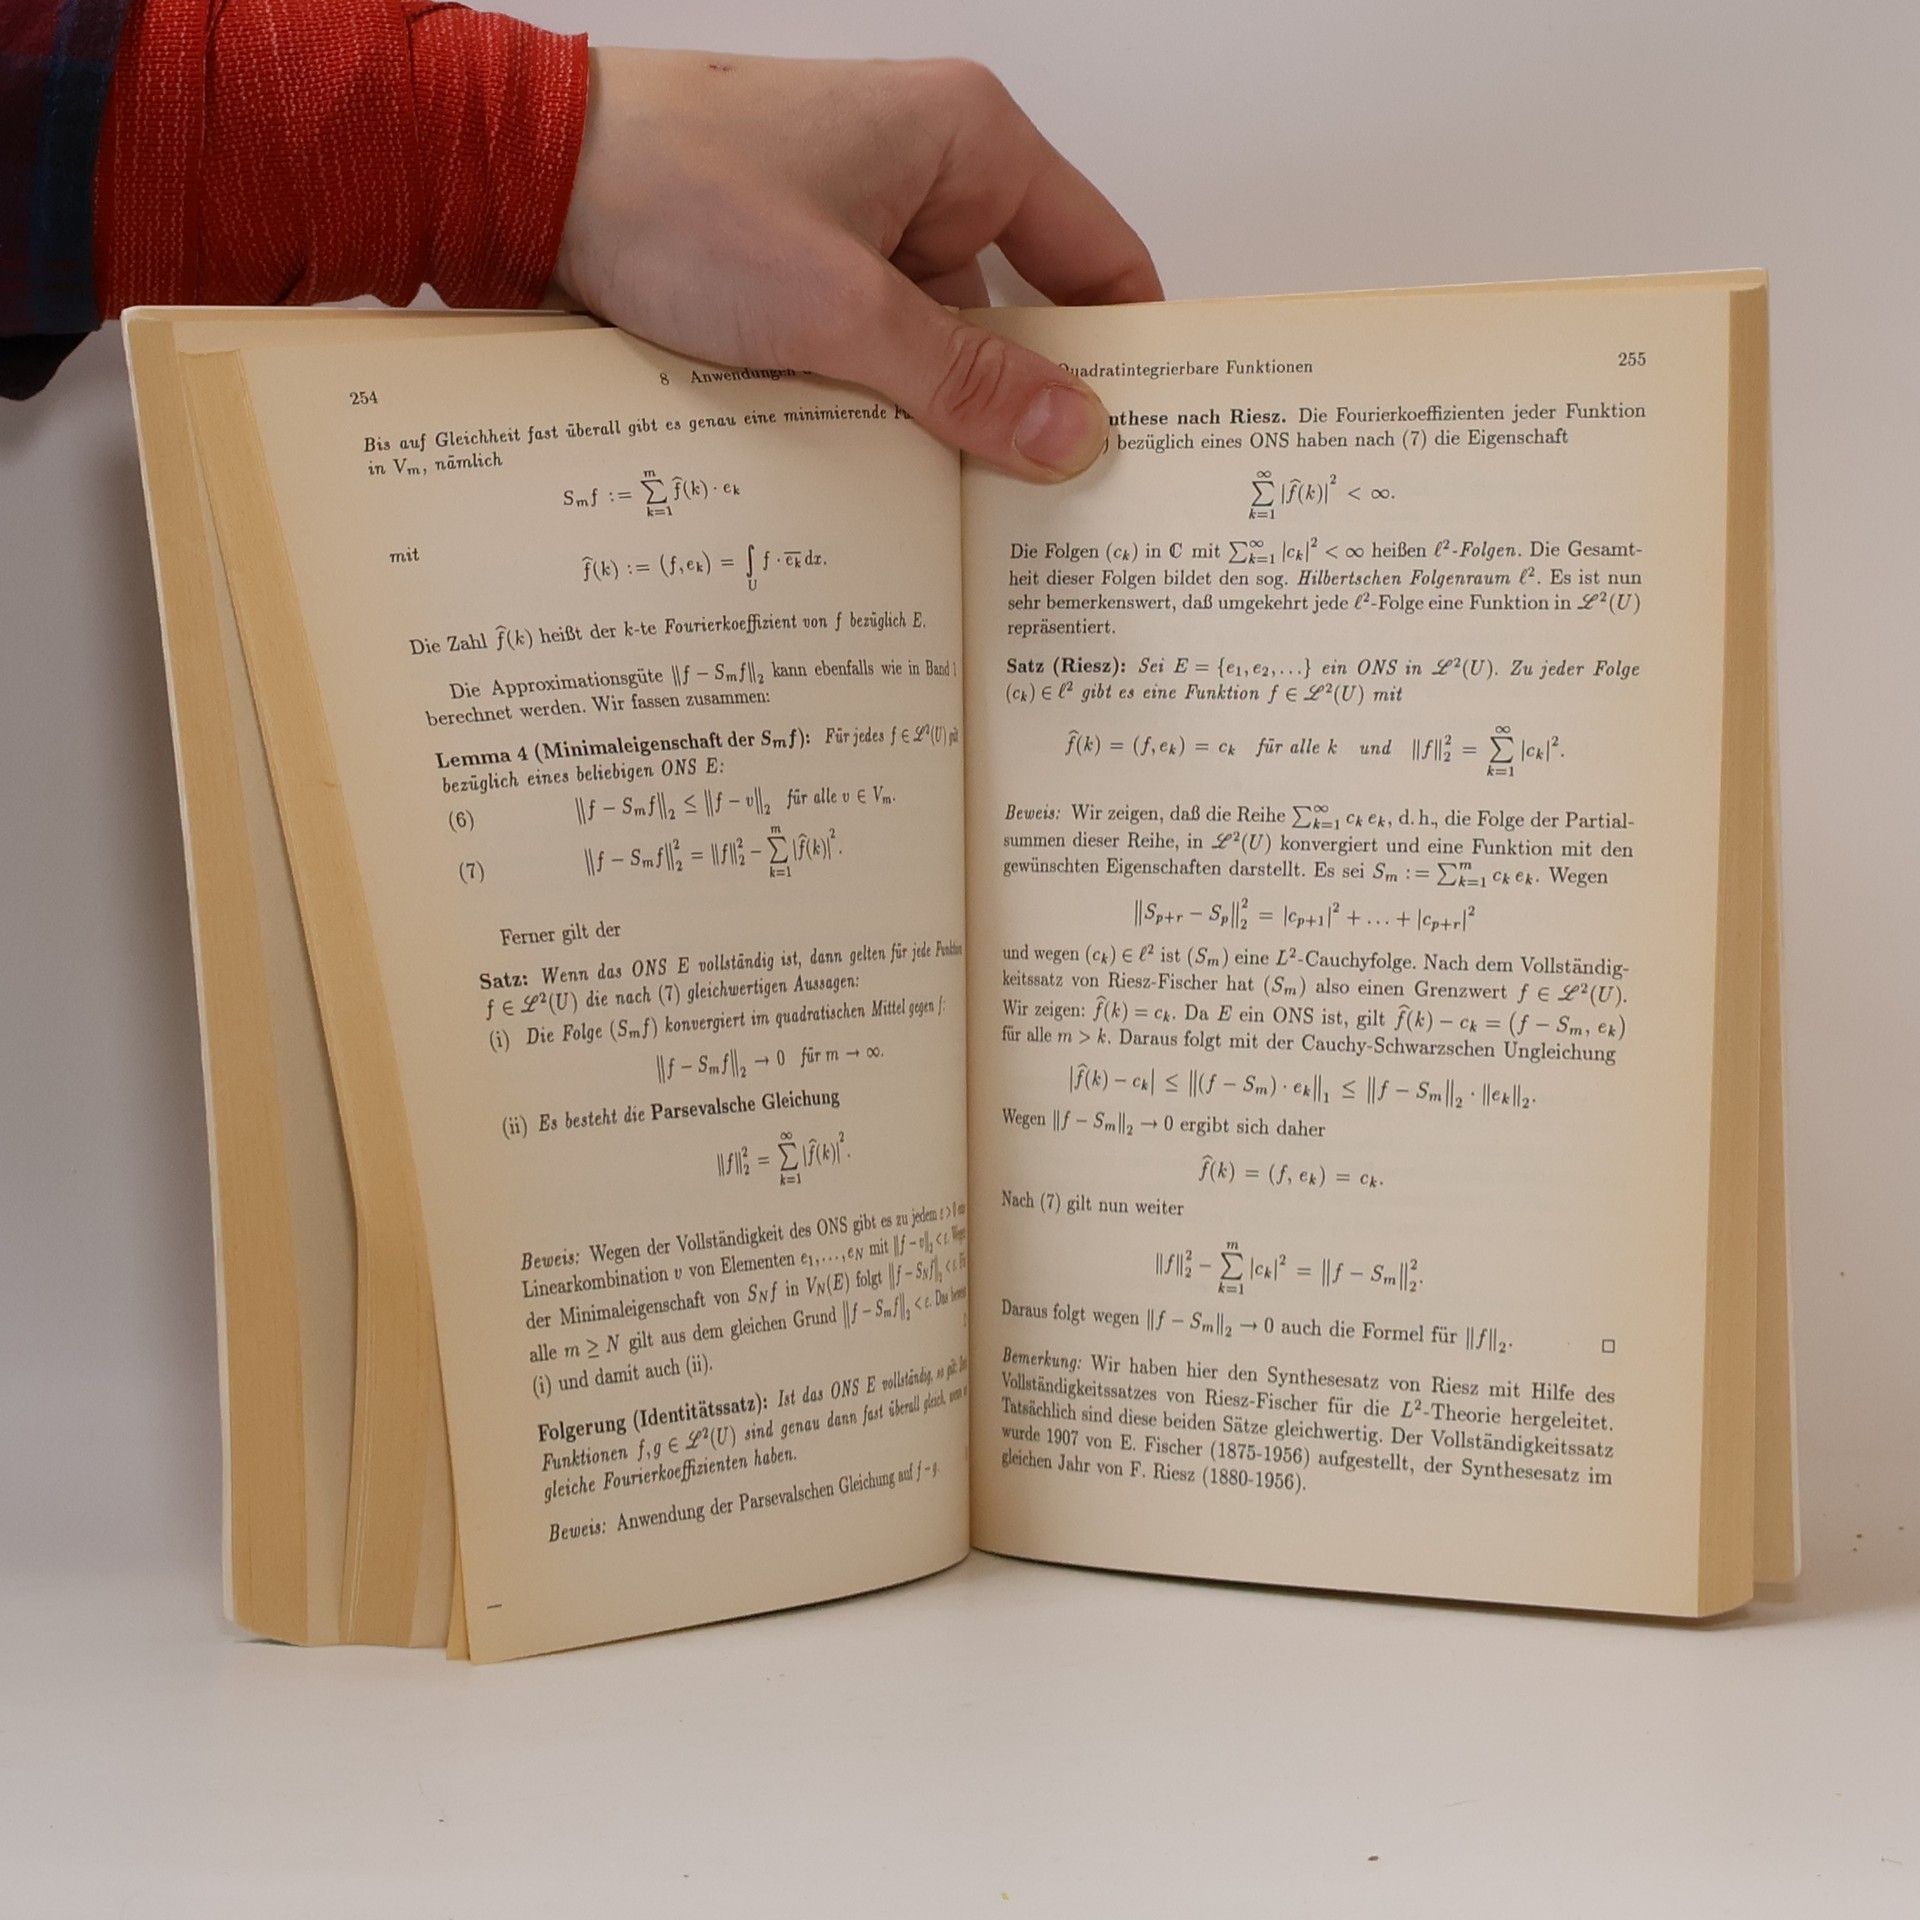 254
8 Anwendungen
Bis auf Gleichheit fast überall gibt es genau eine minimierende
in Vₘ, nämlich
Sₘf := ∑_{k=1}^{m} f̂(k) · eₖ
mit
f̂(k) := ⟨f, eₖ⟩ = ∫_U f · \overline{eₖ} dx.
Die Zahl f̂(k) heißt der k-te Fourierkoeffizient von f bezüglich E.
Die Approximationsgüte ‖f − Sₘf‖₂ kann ebenfalls wie in Band 1
berechnet werden. Wir fassen zusammen:
Lemma 4 (Minimaleigenschaft der Sₘf): Für jedes f ∈ ℒ²(U) gilt
bezüglich eines beliebigen ONS E:
(6) ‖f − Sₘf‖₂ ≤ ‖f − v‖₂ für alle v ∈ Vₘ.
(7) ‖f − Sₘf‖₂² = ‖f‖₂² − ∑_{k=1}^{m} |f̂(k)|².
Ferner gilt der
Satz: Wenn das ONS E vollständig ist, dann gelten für jede Funktion
f ∈ ℒ²(U) die nach (7) gleichwertigen Aussagen:
(i) Die Folge (Sₘf) konvergiert im quadratischen Mittel gegen f:
‖f − Sₘf‖₂ → 0 für m → ∞.
(ii) Es besteht die Parsevalsche Gleichung
‖f‖₂² = ∑_{k=1}^{∞} |f̂(k)|².
Beweis: Wegen der Vollständigkeit des ONS gibt es zu jedem ε > 0
Linearkombination v von Elementen e₁,…,e_N mit ‖f − v‖₂ < ε. Wegen
der Minimaleigenschaft von S_N f in V_N(E) folgt ‖f − S_N f‖₂ < ε. Für
alle m ≥ N gilt aus dem gleichen Grund ‖f − Sₘf‖₂ < ε. Das beweist
(i) und damit auch (ii).
Folgerung (Identitätssatz): Ist das ONS E vollständig, so gilt:
Funktionen f, g ∈ ℒ²(U) sind genau dann fast überall gleich, wenn
gleiche Fourierkoeffizienten haben.
Beweis: Anwendung der Parsevalschen Gleichung auf f − g.
Quadratintegrierbare Funktionen
255
nach Riesz. Die Fourierkoeffizienten jeder Funktion
bezüglich eines ONS haben nach (7) die Eigenschaft
∑_{k=1}^{∞} |f̂(k)|² < ∞.
Die Folgen (cₖ) in ℂ mit ∑_{k=1}^{∞} |cₖ|² < ∞ heißen ℓ²-Folgen. Die Gesamt-
heit dieser Folgen bildet den sog. Hilbertschen Folgenraum ℓ². Es ist nun
sehr bemerkenswert, daß umgekehrt jede ℓ²-Folge eine Funktion in ℒ²(U)
repräsentiert.
Satz (Riesz): Sei E = {e₁, e₂, …} ein ONS in ℒ²(U). Zu jeder Folge
(cₖ) ∈ ℓ² gibt es eine Funktion f ∈ ℒ²(U) mit
f̂(k) = ⟨f, eₖ⟩ = cₖ für alle k und ‖f‖₂² = ∑_{k=1}^{∞} |cₖ|².
Beweis: Wir zeigen, daß die Reihe ∑_{k=1}^{∞} cₖ eₖ, d. h., die Folge der Partial-
summen dieser Reihe, in ℒ²(U) konvergiert und eine Funktion mit den
gewünschten Eigenschaften darstellt. Es sei Sₘ := ∑_{k=1}^{m} cₖ eₖ. Wegen
‖S_{p+r} − S_p‖₂² = |c_{p+1}|² + … + |c_{p+r}|²
und wegen (cₖ) ∈ ℓ² ist (Sₘ) eine L²-Cauchyfolge. Nach dem Vollständig-
keitssatz von Riesz-Fischer hat (Sₘ) also einen Grenzwert f ∈ ℒ²(U).
Wir zeigen: f̂(k) = cₖ. Da E ein ONS ist, gilt f̂(k) − cₖ = ⟨f − Sₘ, eₖ⟩
für alle m > k. Daraus folgt mit der Cauchy-Schwarzschen Ungleichung
|f̂(k) − cₖ| ≤ ‖(f − Sₘ) · eₖ‖₁ ≤ ‖f − Sₘ‖₂ · ‖eₖ‖₂.
Wegen ‖f − Sₘ‖₂ → 0 ergibt sich daher
f̂(k) = ⟨f, eₖ⟩ = cₖ.
Nach (7) gilt nun weiter
‖f‖₂² − ∑_{k=1}^{m} |cₖ|² = ‖f − Sₘ‖₂².
Daraus folgt wegen ‖f − Sₘ‖₂ → 0 auch die Formel für ‖f‖₂. □
Bemerkung: Wir haben hier den Synthesesatz von Riesz mit Hilfe des
Vollständigkeitssatzes von Riesz-Fischer für die L²-Theorie hergeleitet.
Tatsächlich sind diese beiden Sätze gleichwertig. Der Vollständigkeitssatz
wurde 1907 von E. Fischer (1875-1956) aufgestellt, der Synthesesatz im
gleichen Jahr von F. Riesz (1880-1956).